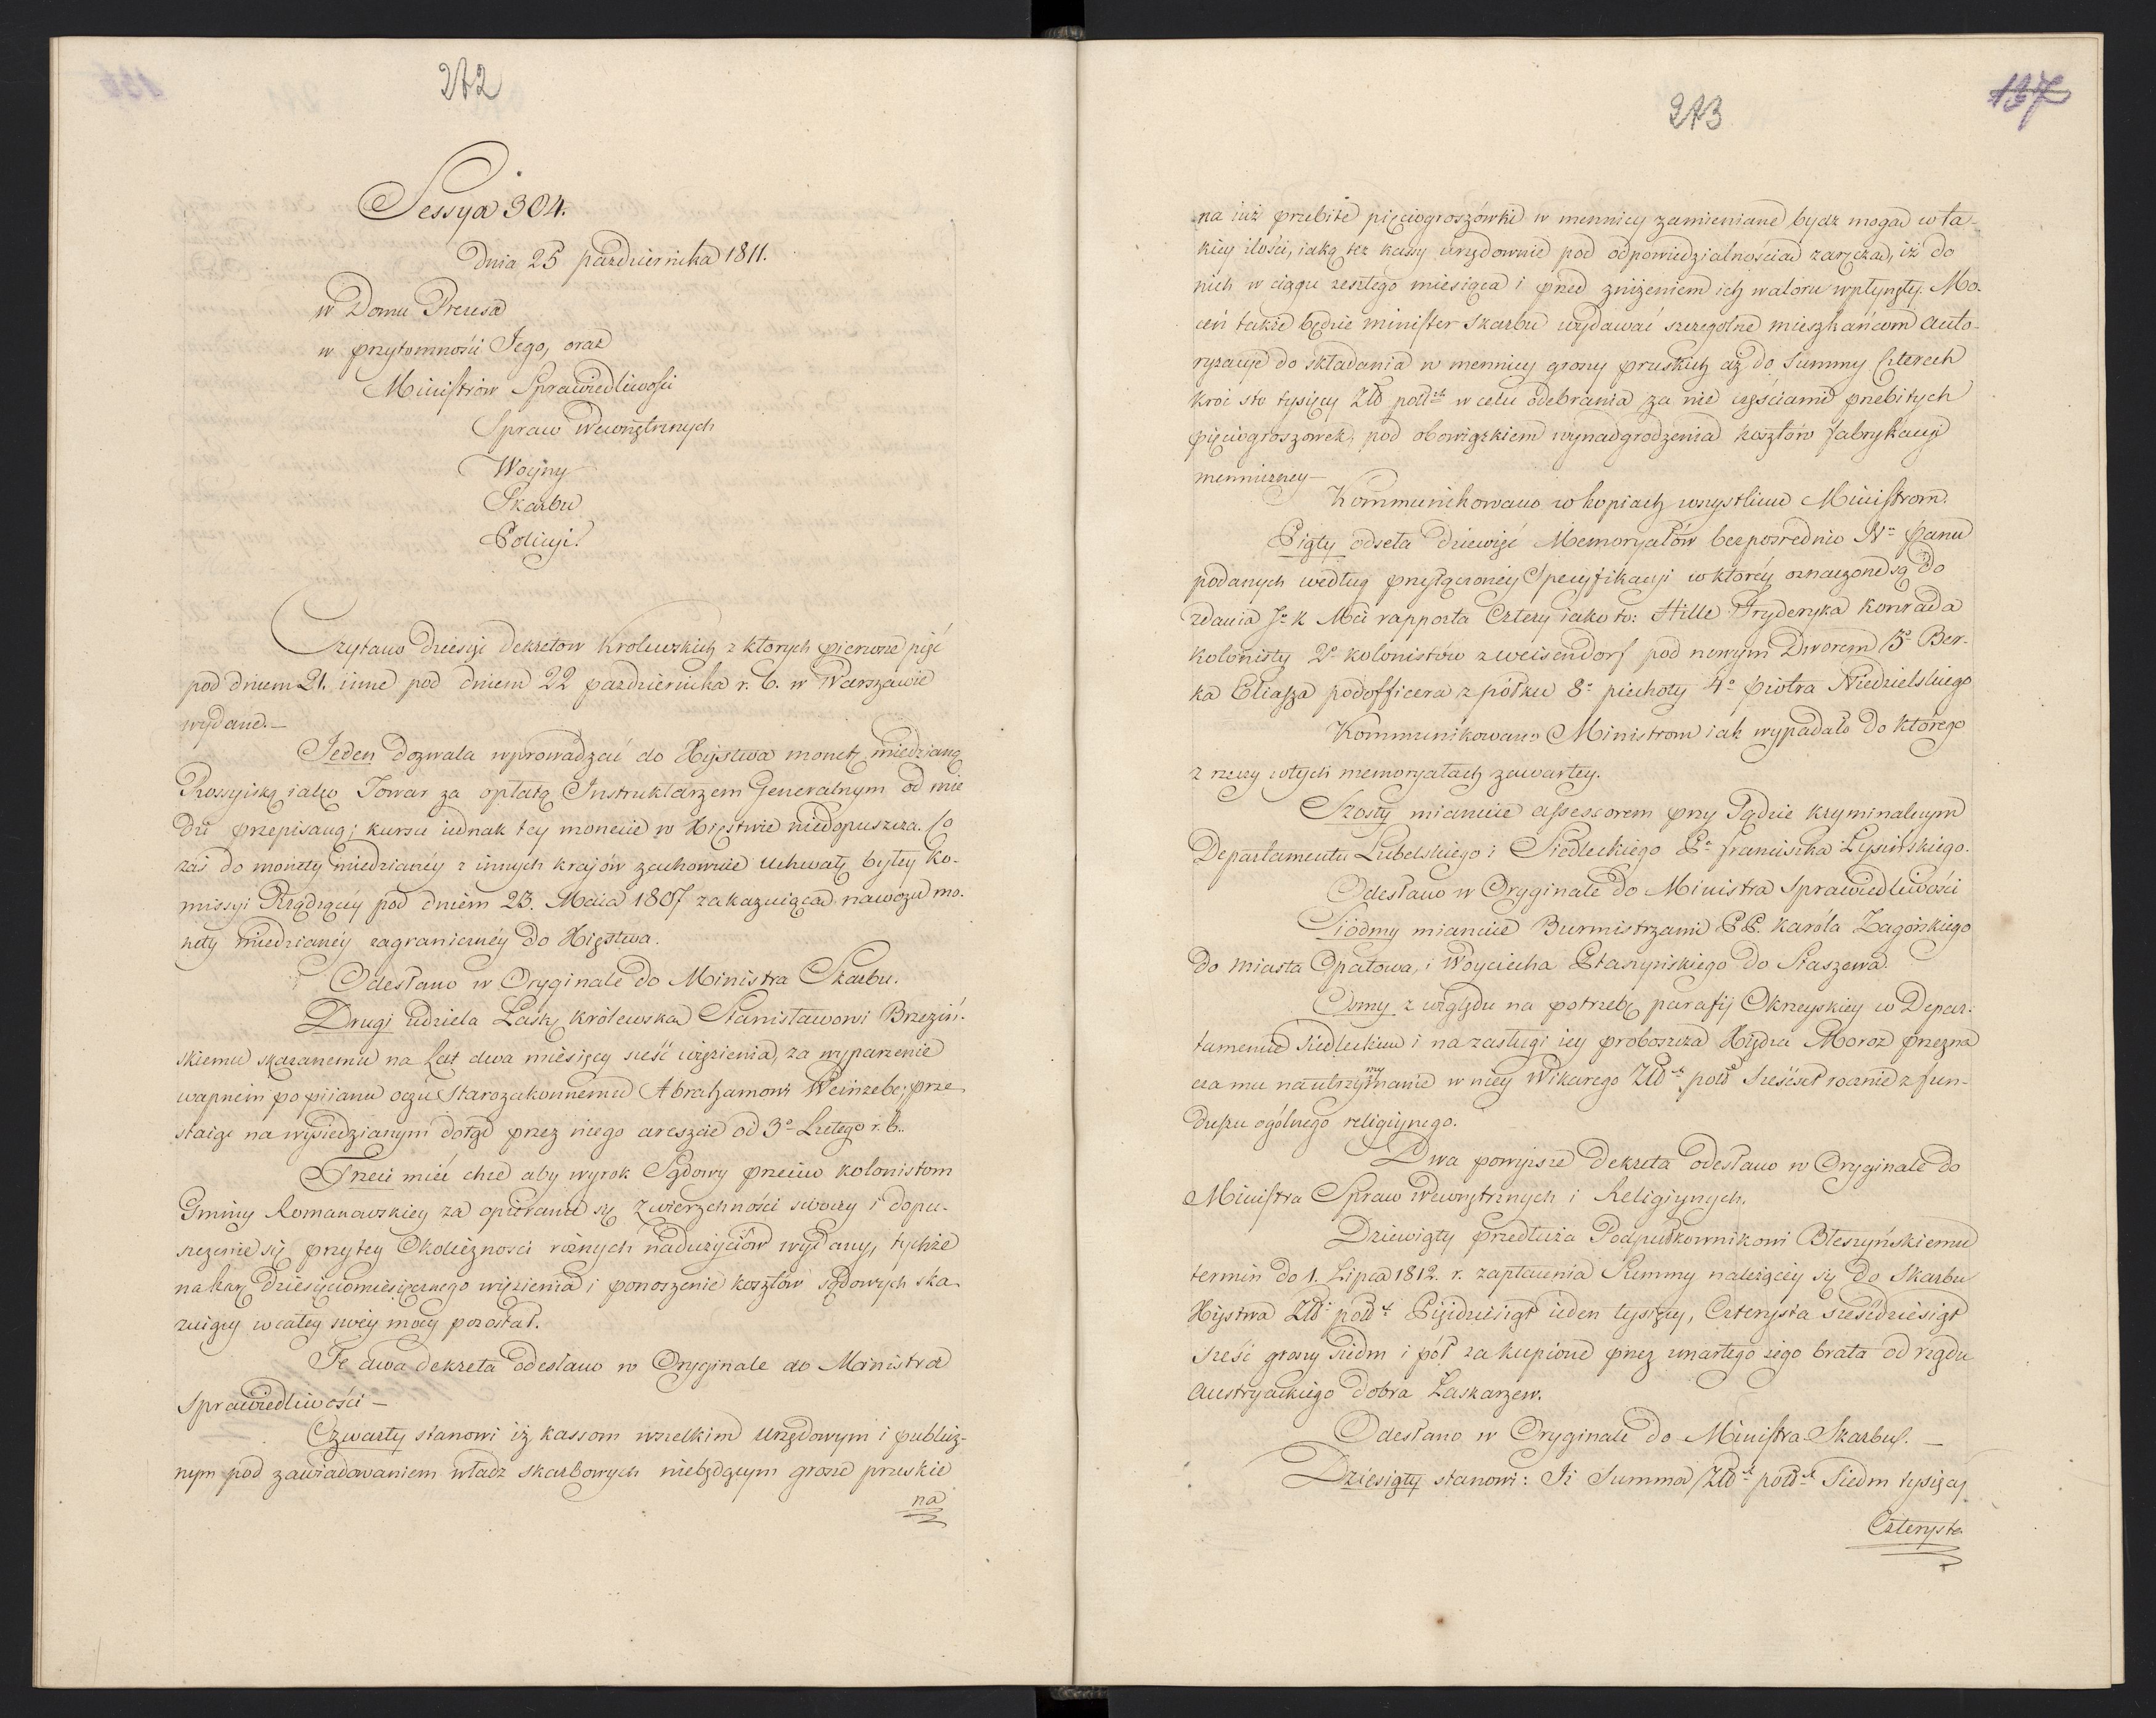 272
Sessya 304.
Dnia 25 października 1811.
w Domu Prezesa
w przytomności Jego, oraz
Ministrów Sprawiedliwości
Spraw Wewnętrznych
Woyny
Skarbu
Policyi.
Czytano dziesięć Dekretow Krolewskich z ktorych pierwsze pięć
pod dniem 21. inne pod dniem 22 października r. b. w Warszawie
wydane. —
Jeden dozwala wprowadzać do Xięstwa monetę miedzianą
Rossyiską iako Towar za opłatą Instruktarzem Generalnym od mie
dzi przepisaną; kursu iednak tey monecie w Xięstwie niedopuszcza. Co
zaś do monety miedzianéy z innych kraiów zachowuie uchwałę byłey Ko-
missyi Rządzącéy pod dniem 23. Maia 1807 zakazuiącą nawozu mo-
nety miedzianéy zagranicznéy do Xięstwa.
Odesłano w Oryginale do Ministra Skarbu.
Drugi udziela Łaskę Królewską Stanisławowi Brzeziń-
skiemu skazanemu na Lat dwa miesięcy sześć więzienia, za wyparzenie
wapnem po piianu oczu Starozakonnemu Abrahamowi Weinzebe; prze
staige na wysiedzianym dotąd przez niego areszcie od 3º Lutego r. b..
Trzeci mieć chce aby wyrok Sądowy przeciw kolonistom
Gminy Romanowskiey za opieranie się Zwierzchności swoiey i dopu-
szczenie się przytey Okoliczności różnych nadużyciów wydany, tychże
na karę dziesięciomiesięcznego więzienia i ponoszenie kosztów sądowych ska-
zuiący w całey swéy mocy pozostał.
Te dwa dekreta odesłano w Oryginale do Ministra
Sprawiedliwości —
Czwarty stanowi iż kassom wszelkim Urzędowym i publicz-
nym pod zawiadowaniem władz skarbowych niebędącym grosze pruskie
na
273
137
na iuż przebite pięciogroszówki w mennicy zamieniane bydz mogą w ta-
kiey ilości, iaką też kassy urzędownie pod odpowiedzialnością zaręczą, iż do
nich w ciągu zeszłego miesiąca i przed zniżeniem ich waloru wpłynęły. Mo-
cen także będzie minister skarbu wydawać szczegolne mieszkańcom auto-
ryzacye do składania w mennicy groszy pruskich aż do Summy Czterech
kroć sto tysięcy Zło pols w celu odebrania za nie częściami przebitych
pięciogroszowek, pod obowiązkiem wynadgrodzenia kosztów fabrykacyi
menniczney —
Kommunikowano w kopiach wszystkim Ministrom.
Piąty odseła dziewięć Memoryałów bezpośrednio N. Panu
podanych według przyłączonéy Specyfikacyi w któréy oznaczone są do
zdania J. K Mci rapporta Cztery iako to: Hille Fryderyka Konrada
Kolonisty 2º kolonistów z weisendorf pod nowym Dworem 3º Ber-
ka Eliasza podofficera z półku 8º piechoty 4º Piotra Niedzielskiego
Kommunikowano Ministrom iak wypadało do którego
z rzeczy w tych memoryałach zawartey.
Szosty mianuie assessorem przy Sądzie kryminalnym
Departamentu Lubelskiego i Siedleckiego Pa Franciszka Łysińskiego.
Odesłano w Oryginale do Ministra Sprawiedliwości
Siódmy mianuie Burmistrzami PP. Karóla Zagórskiego
do miasta Opatowa, i Woyciecha Staszyńskiego do Staszewa.
Osmy z względu na potrzebę parafij Okrzeyskiey w Depar-
tamencie Siedleckim i na zasługi iey proboszcza Xiędza Moroz przezna
cza mu na utrzymanie w niey Wikarego Zło pols sześćset rocznie z fun-
duszu ogólnego religiynego.
Dwa powyższe Dekreta odesłano w Oryginale do
Ministra Spraw Wewnętrznych i Religiynych.
Dziewiąty przedłuża Podpułkownikowi Błeszyńskiemu
termin do 1. Lipca 1812. r. zapłacenia Summy należącéy się do Skarbu
Xięstwa Zło pols Pięćdziesiąt ieden tysięcy, Czterysta sześćdziesiąt
sześć groszy siedm i pół za kupione przez zmarłego iego brata od rządu
Austryackiego dobra Łaskarzew.
Odesłano w Oryginale do Ministra Skarbu. —
Dziesiąty stanowi: Iż Summa Zło pols Siedm tysięcy
Czterysta